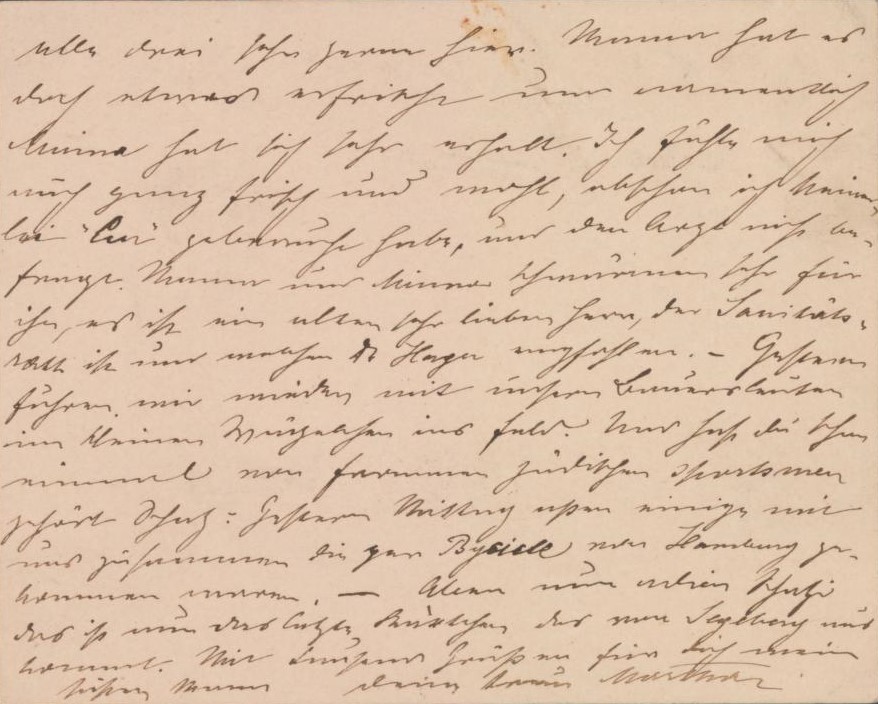 alle drei sehr gerne hier. Mama hat es
doch etwas erfrischt und namentlich
Minna hat sich sehr erholt. Ich fühle mich
auch ganz frisch und wohl, obschon ich keiner-
lei "Cur" gebraucht habe, und den Arzt nicht be-
fragt. Mama und Minna schwärmen sehr für
ihn, es ist ein alter sehr lieber Herr, der Sanitäts-
rath ist und welchen Dr Heger empfohlen. – Gestern
fuhren wir wieder mit unsern Bauersleuten
im kleinen Wägelchen ins Feld. Und hast du schon
einmal von frommen jüdischen Sportsmen
gehört Schatz: Gestern Mittag aßen einige mit
uns zusammen die per Bycicle von Hamburg ge-
kommen waren. — Aber nun adieu Schatzi
das ist nun das letzte Kärtchen das von Segeberg aus
kommt. Mit tausend Grüßen für dich mein
süßer Mann deine treue Martha